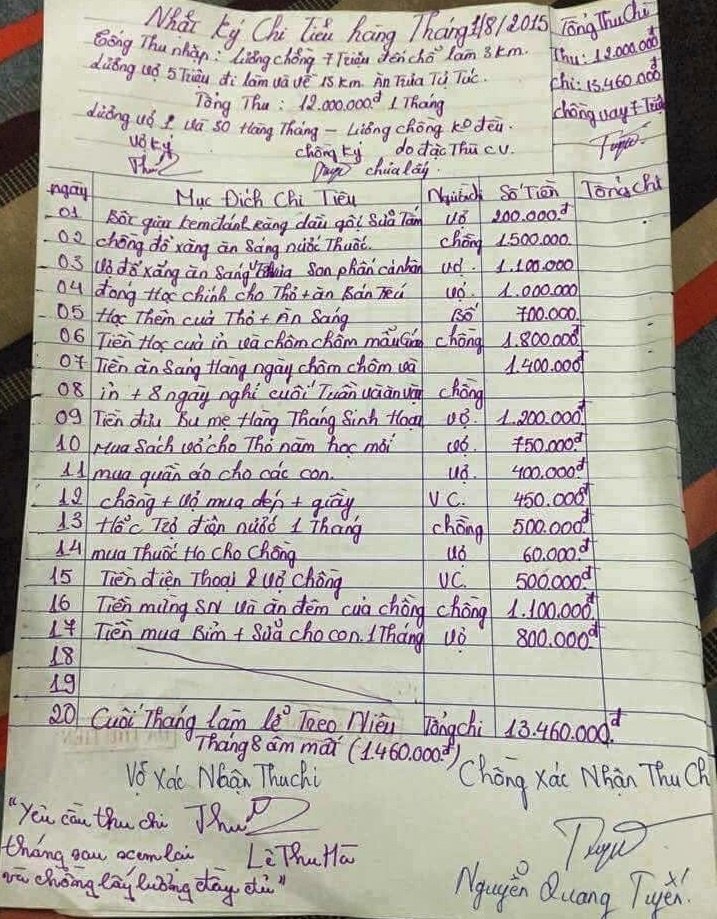 Nhật Ký Chi Tiêu hàng Tháng 1/8/2015
Tổng Thu Chi
Tổng Thu nhập: Lương chồng 7 Triệu đến chỗ làm 3 km.
Thu: 12.000.000đ
Lương vợ 5 Triệu đi làm và về 15 km. Ăn Trưa Tự Túc.
Chi: 13.460.000đ
Tổng Thu: 12.000.000đ 1 Tháng
chồng vay 7 Triệu
Lương vợ 1 và 30 Hàng Tháng – Lương chồng ko đều.
Vợ ký chồng ký do đặc Thù CV.
chưa lấy.
ngày Mục Đích Chi Tiêu Người chi Số Tiền Tổng chi
01 Bột giặt kem đánh răng dầu gội Sữa Tắm Vợ 200.000.đ
02 chồng đổ xăng ăn Sáng nước Thuốc. chồng 1.500.000.
03 Vợ đổ xăng ăn Sáng Trưa Son phấn cá nhân vợ. 1.100.000
04 đóng Học chính cho Thỏ + ăn Bán Trú vợ. 1.000.000
05 Học Thêm của Thỏ + Ăn Sáng Bố 700.000.
06 Tiền Học của in và chôm chôm mẫu Giáo chồng 1.800.000đ
07 Tiền ăn Sáng Hàng ngày chôm chôm và 1.400.000đ
08 in + 8 ngày nghỉ cuối Tuần và ăn vặt chồng
09 Tiền đưa Bu mẹ Hàng Tháng Sinh Hoạt vợ. 1.200.000đ
10 Mua Sách vở cho Thỏ năm học mới vợ. 750.000đ
11 mua quần áo cho các con. vợ. 400.000đ
12 chồng + vợ mua dép + giầy V C. 450.000đ
13 điện nước 1 Tháng chồng 500.000đ
14 mua Thuốc Ho cho Chồng vợ 60.000đ
15 Tiền điện Thoại 2 vợ chồng VC. 500.000đ
16 Tiền mừng SN và ăn đêm của chồng chồng 1.100.000đ
17 Tiền mua Bỉm + Sữa cho con. 1 Tháng vợ 800.000.đ
18
19
20 Cuối Tháng làm lố Treo Niêu Tổng chi 13.460.000đ
Tháng 8 âm mất (1.460.000đ)
Vợ Xác Nhận Thu chi Chồng Xác Nhận Thu Ch
"Yêu cầu thu chi
tháng sau xem lại Lê Thu Hà
và chồng lấy lương đầy đủ"
Nguyễn Quang Tuyến.